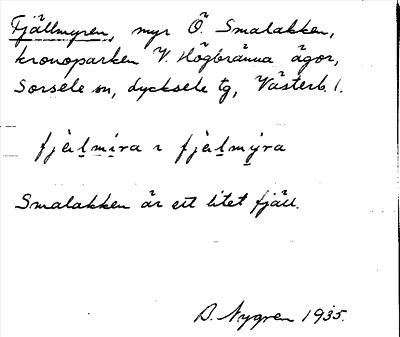 Fjällmyren, myr Ö. Smalakken,
kronoparken V. Högbränna ägor,
Sorsele sn, Lycksele tg, Västerb. l.
fjèl̠m̠i̠ra ɿ fjèl̠m̠ýra
Smalakken är ett litet fjäll.
D. Nygren 1935.